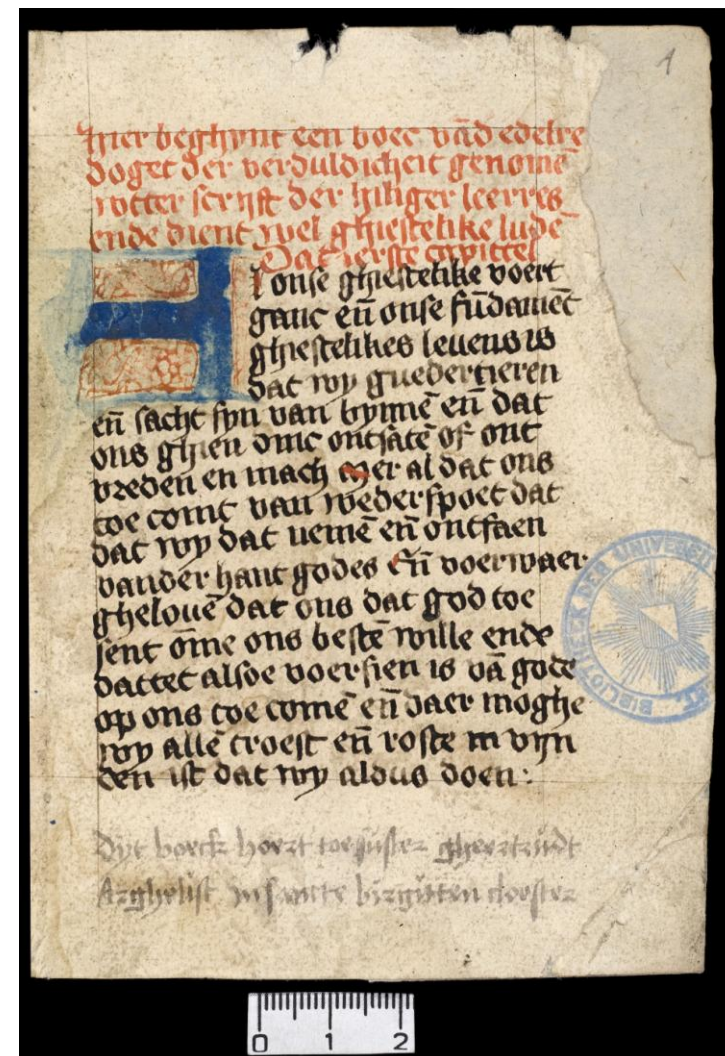 1
hier beghynt een boec vād edelre
doget der verduldicheit genomē
wtter scrift der hiliger leerres
ende dient wel ghiestelike ludē
Dat ierste capittel
Al onse ghiestelike voert
ganc eñ onse fūdamēt
ghiestelikes leuens is
dat wy guedertieren
eñ sacht syn van bynnē eñ dat
ons ghien dinc ontsatē of ont
vreden en mach mer al dat ons
toe comt van wederspoet dat
dat wy dat nemē eñ ontfaen
vander hant godes Eñ voerwaer
ghelouē dat ons dat god toe
sent ōme ons bestē wille ende
dattet alsoe voersien is vā gode
op ons toe comē eñ daer moghe
wy allē troest eñ roste in vyn
den ist dat wy aldus doen:
Dyt boeck hoert toe suster gheertrudt
Arghelist in sancte birgitten cloester
BIBLIOTHEEK DER UNIVERSI
0 1 2